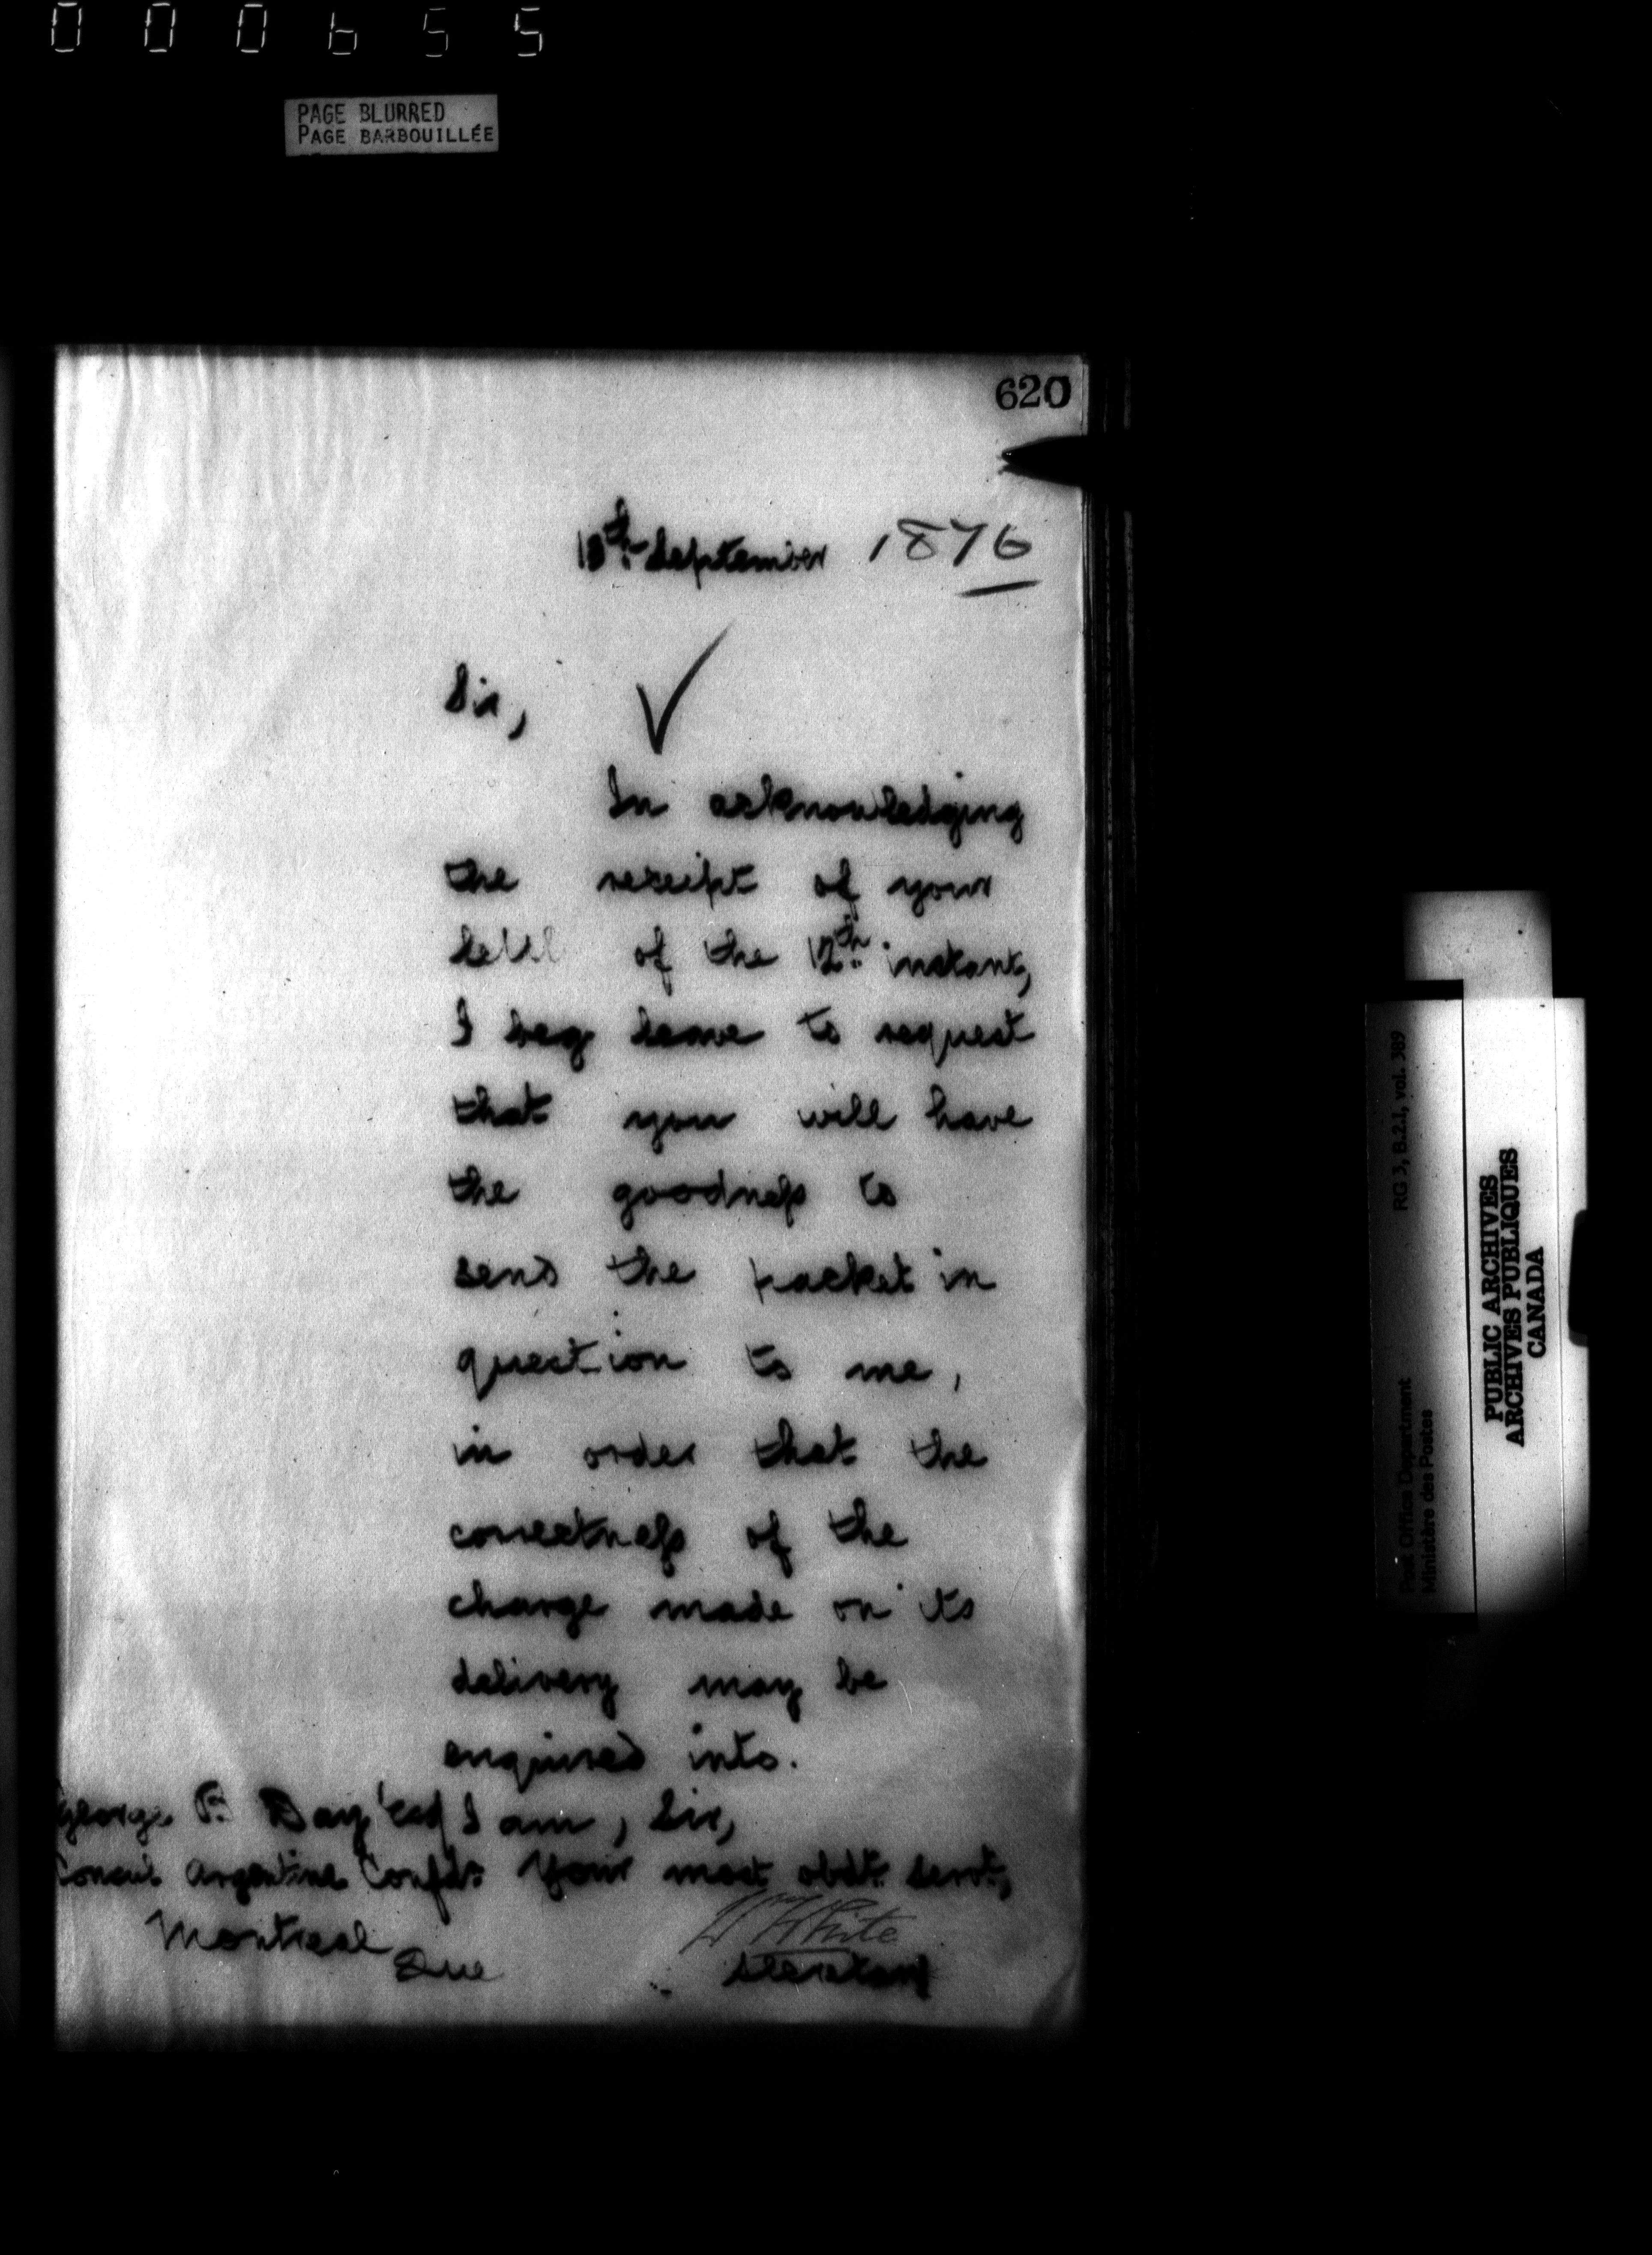 000655
PAGE BLURRED
PAGE BARBOUILLÉE
620
September 1876
Sir,
In acknowledging
the receipt of your
of the 12th instant,
I beg leave to request
that you will have
the goodness to
send the packet in
question to me,
in order that the
correctness of the
charge made on its
delivery may be
enquired into.
I am, Sir,
Your most obdt. servt,
White
Secretary
George Day Esq
Consul Argentine Confdn.
Montreal
Que
RG 3, B.2.1, vol. 389
Post Office Department
Ministère des Postes
PUBLIC ARCHIVES
ARCHIVES PUBLIQUES
CANADA